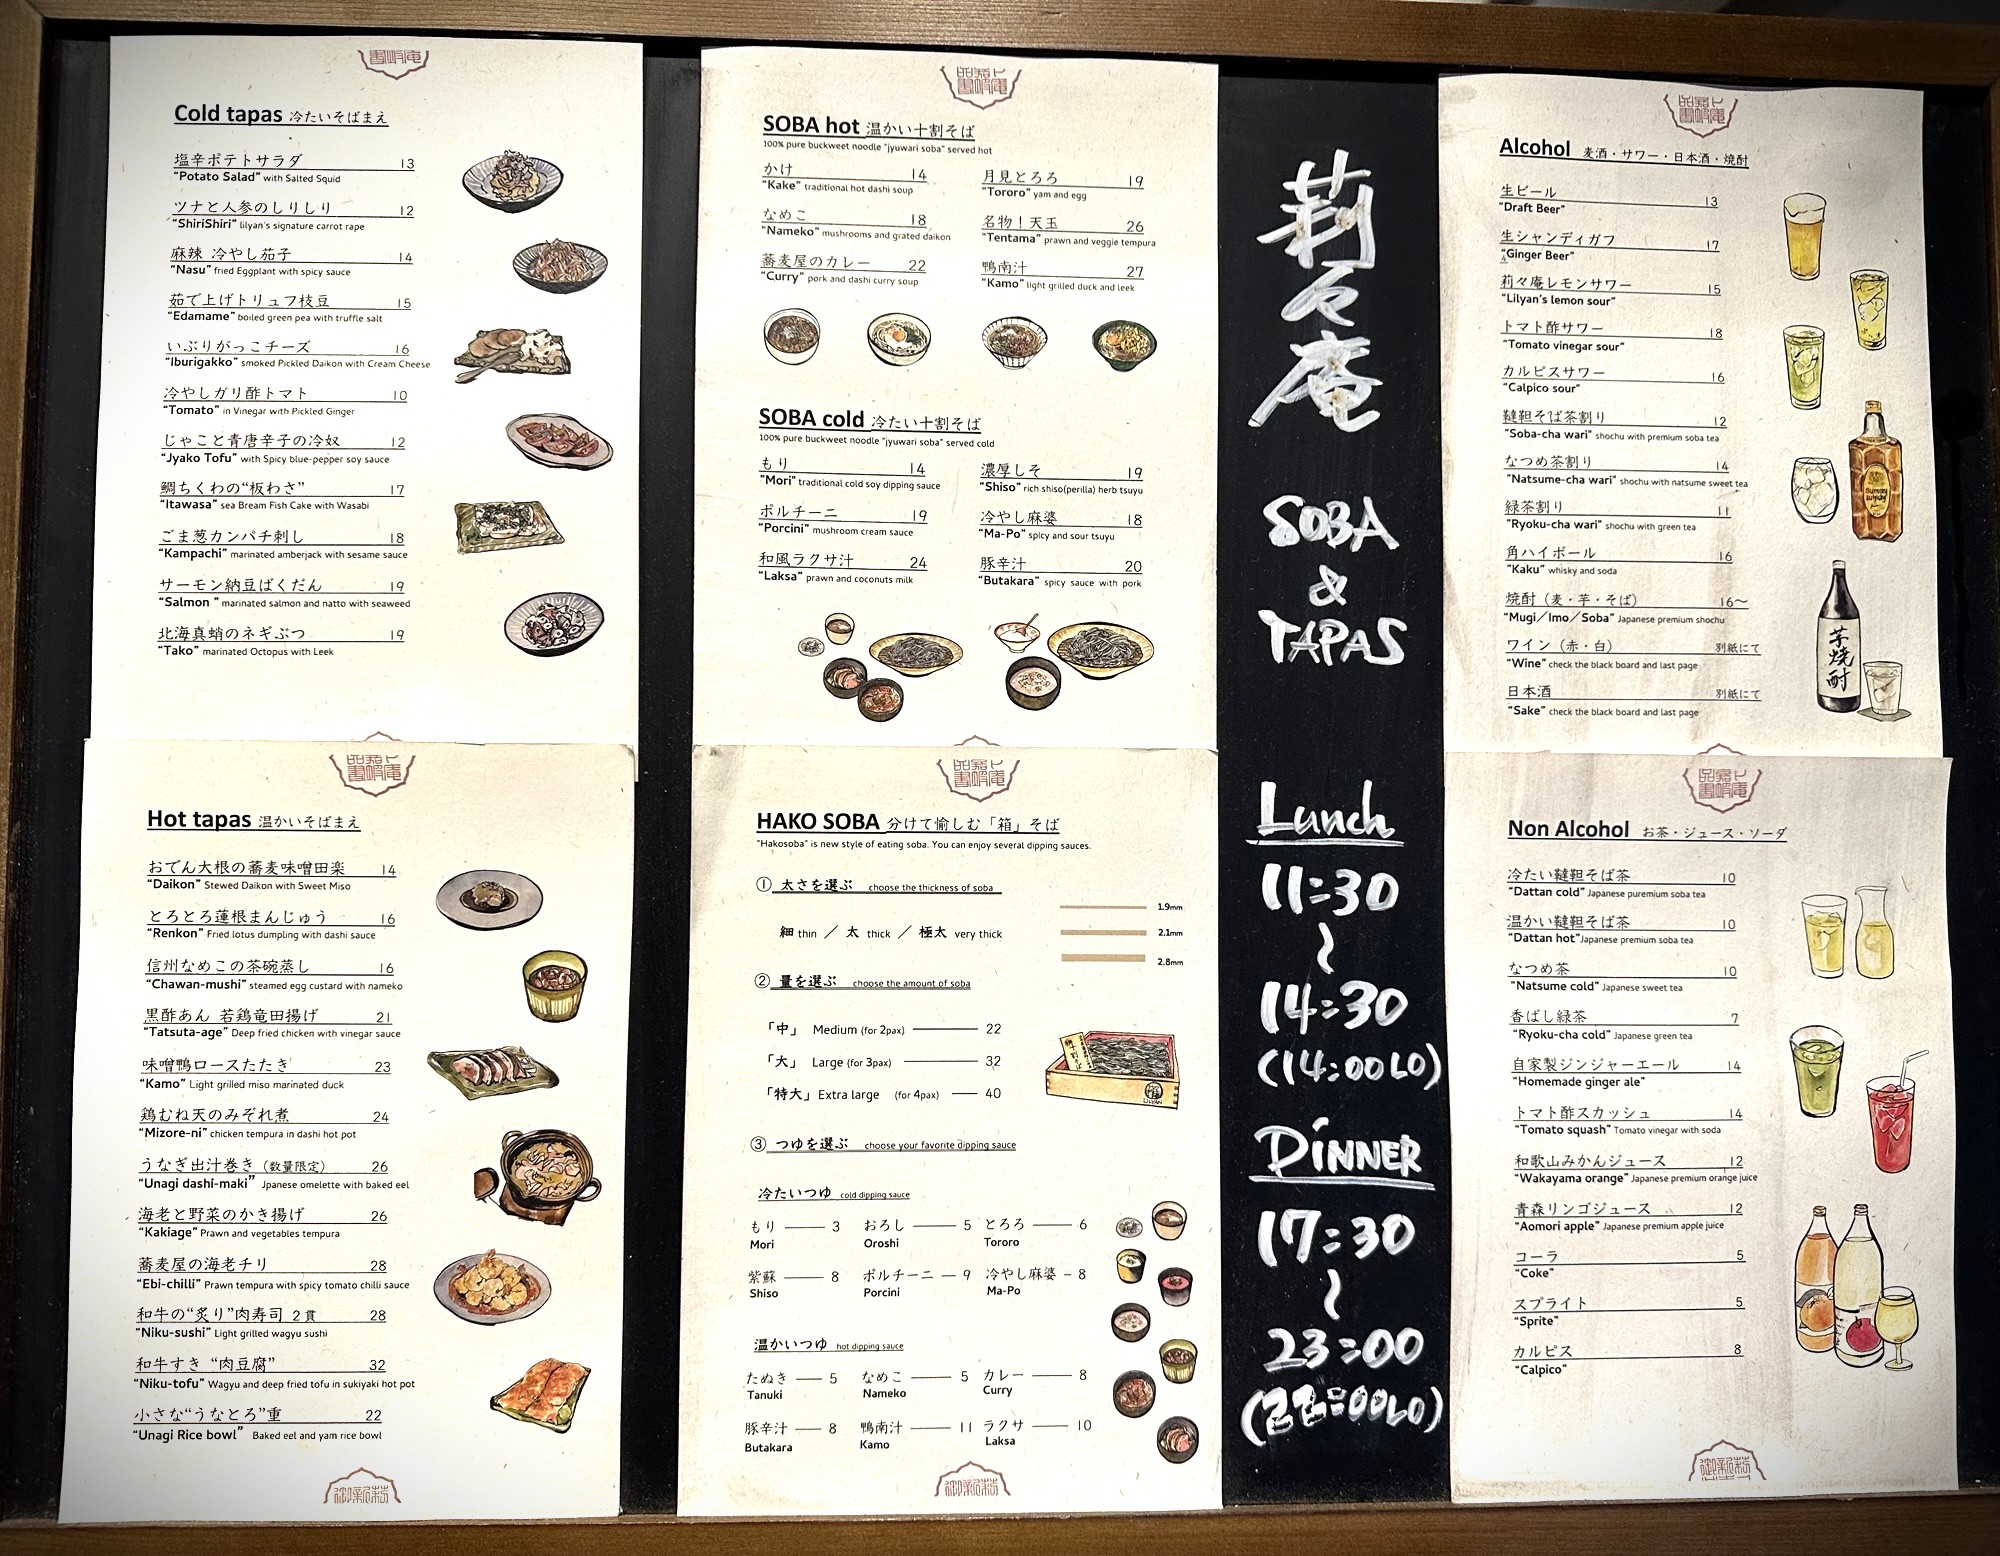 Cold tapas 冷たいそばまえ
塩辛ポテトサラダ 13
"Potato Salad" with Salted Squid
ツナと人参のしりしり 12
"ShiriShiri" lilyan's signature carrot rape
麻辣 冷やし茄子 14
"Nasu" fried Eggplant with spicy sauce
茹で上げトリュフ枝豆 15
"Edamame" boiled green pea with truffle salt
いぶりがっこチーズ 16
"Iburigakko" smoked Pickled Daikon with Cream Cheese
冷やしガリ酢トマト 10
"Tomato" in Vinegar with Pickled Ginger
じゃこと青唐辛子の冷奴 12
"Jyako Tofu" with Spicy blue-pepper soy sauce
鯛ちくわの“板わさ” 17
"Itawasa" sea Bream Fish Cake with Wasabi
ごま葱カンパチ刺し 18
"Kampachi" marinated amberjack with sesame sauce
サーモン納豆ばくだん 19
"Salmon " marinated salmon and natto with seaweed
北海真蛸のネギぶつ 19
"Tako" marinated Octopus with Leek
Hot tapas 温かいそばまえ
おでん大根の蕎麦味噌田楽 14
"Daikon" Stewed Daikon with Sweet Miso
とろとろ蓮根まんじゅう 16
"Renkon" Fried lotus dumpling with dashi sauce
信州なめこの茶碗蒸し 16
"Chawan-mushi" steamed egg custard with nameko
黒酢あん 若鶏竜田揚げ 21
"Tatsuta-age" Deep fried chicken with vinegar sauce
味噌鴨ロースたたき 23
"Kamo" Light grilled miso marinated duck
鶏むね天のみぞれ煮 24
"Mizore-ni" chicken tempura in dashi hot pot
うなぎ出汁巻き（数量限定） 26
"Unagi dashi-maki" Jpanese omelette with baked eel
海老と野菜のかき揚げ 26
"Kakiage" Prawn and vegetables tempura
蕎麦屋の海老チリ 28
"Ebi-chilli" Prawn tempura with spicy tomato chilli sauce
和牛の“炙り”肉寿司 2貫 28
"Niku-sushi" Light grilled wagyu sushi
和牛すき “肉豆腐” 32
"Niku-tofu" Wagyu and deep fried tofu in sukiyaki hot pot
小さな“うなとろ”重 22
"Unagi Rice bowl" Baked eel and yam rice bowl
SOBA hot 温かい十割そば
100% pure buckweet noodle "jyuwari soba" served hot
かけ 14 月見とろろ 19
"Kake" traditional hot dashi soup "Tororo" yam and egg
なめこ 18 名物！天玉 26
"Nameko" mushrooms and grated daikon "Tentama" prawn and veggie tempura
蕎麦屋のカレー 22 鴨南汁 27
"Curry" pork and dashi curry soup "Kamo" light grilled duck and leek
SOBA cold 冷たい十割そば
100% pure buckweet noodle "jyuwari soba" served cold
もり 14 濃厚しそ 19
"Mori" traditional cold soy dipping sauce "Shiso" rich shiso(perilla) herb tsuyu
ポルチーニ 19 冷やし麻婆 18
"Porcini" mushroom cream sauce "Ma-Po" spicy and sour tsuyu
和風ラクサ汁 24 豚辛汁 20
"Laksa" prawn and coconuts milk "Butakara" spicy sauce with pork
HAKO SOBA 分けて愉しむ「箱」そば
"Hakosoba" is new style of eating soba. You can enjoy several dipping sauces.
① 太さを選ぶ choose the thickness of soba
細 thin ／ 太 thick ／ 極太 very thick
1.9mm
2.1mm
2.8mm
② 量を選ぶ choose the amount of soba
「中」 Medium (for 2pax) 22
「大」 Large (for 3pax) 32
「特大」 Extra large (for 4pax) 40
③ つゆを選ぶ choose your favorite dipping sauce
冷たいつゆ cold dipping sauce
もり 3 おろし 5 とろろ 6
Mori Oroshi Tororo
紫蘇 8 ポルチーニ 9 冷やし麻婆 8
Shiso Porcini Ma-Po
温かいつゆ hot dipping sauce
たぬき 5 なめこ 5 カレー 8
Tanuki Nameko Curry
豚辛汁 8 鴨南汁 11 ラクサ 10
Butakara Kamo Laksa
莉々庵
SOBA
&
TAPAS
Lunch
11:30
〜
14:30
(14:00LO)
DINNER
17:30
〜
23:00
(22:00LO)
Alcohol 麦酒・サワー・日本酒・焼酎
生ビール 13
"Draft Beer"
生シャンディガフ 17
"Ginger Beer"
莉々庵レモンサワー 15
"Lilyan's lemon sour"
トマト酢サワー 18
"Tomato vinegar sour"
カルピスサワー 16
"Calpico sour"
韃靼そば茶割り 12
"Soba-cha wari" shochu with premium soba tea
なつめ茶割り 14
"Natsume-cha wari" shochu with natsume sweet tea
緑茶割り 11
"Ryoku-cha wari" shochu with green tea
角ハイボール 16
"Kaku" whisky and soda
焼酎（麦・芋・そば） 16〜
"Mugi／Imo／Soba" Japanese premium shochu
ワイン（赤・白） 別紙にて
"Wine" check the black board and last page
日本酒 別紙にて
"Sake" check the black board and last page
芋焼酎
Non Alcohol お茶・ジュース・ソーダ
冷たい韃靼そば茶 10
"Dattan cold" Japanese puremium soba tea
温かい韃靼そば茶 10
"Dattan hot" Japanese premium soba tea
なつめ茶 10
"Natsume cold" Japanese sweet tea
香ばし緑茶 7
"Ryoku-cha cold" Japanese green tea
自家製ジンジャーエール 14
"Homemade ginger ale"
トマト酢スカッシュ 14
"Tomato squash" Tomato vinegar with soda
和歌山みかんジュース 12
"Wakayama orange" Japanese premium orange juice
青森リンゴジュース 12
"Aomori apple" Japanese premium apple juice
コーラ 5
"Coke"
スプライト 5
"Sprite"
カルピス 8
"Calpico"